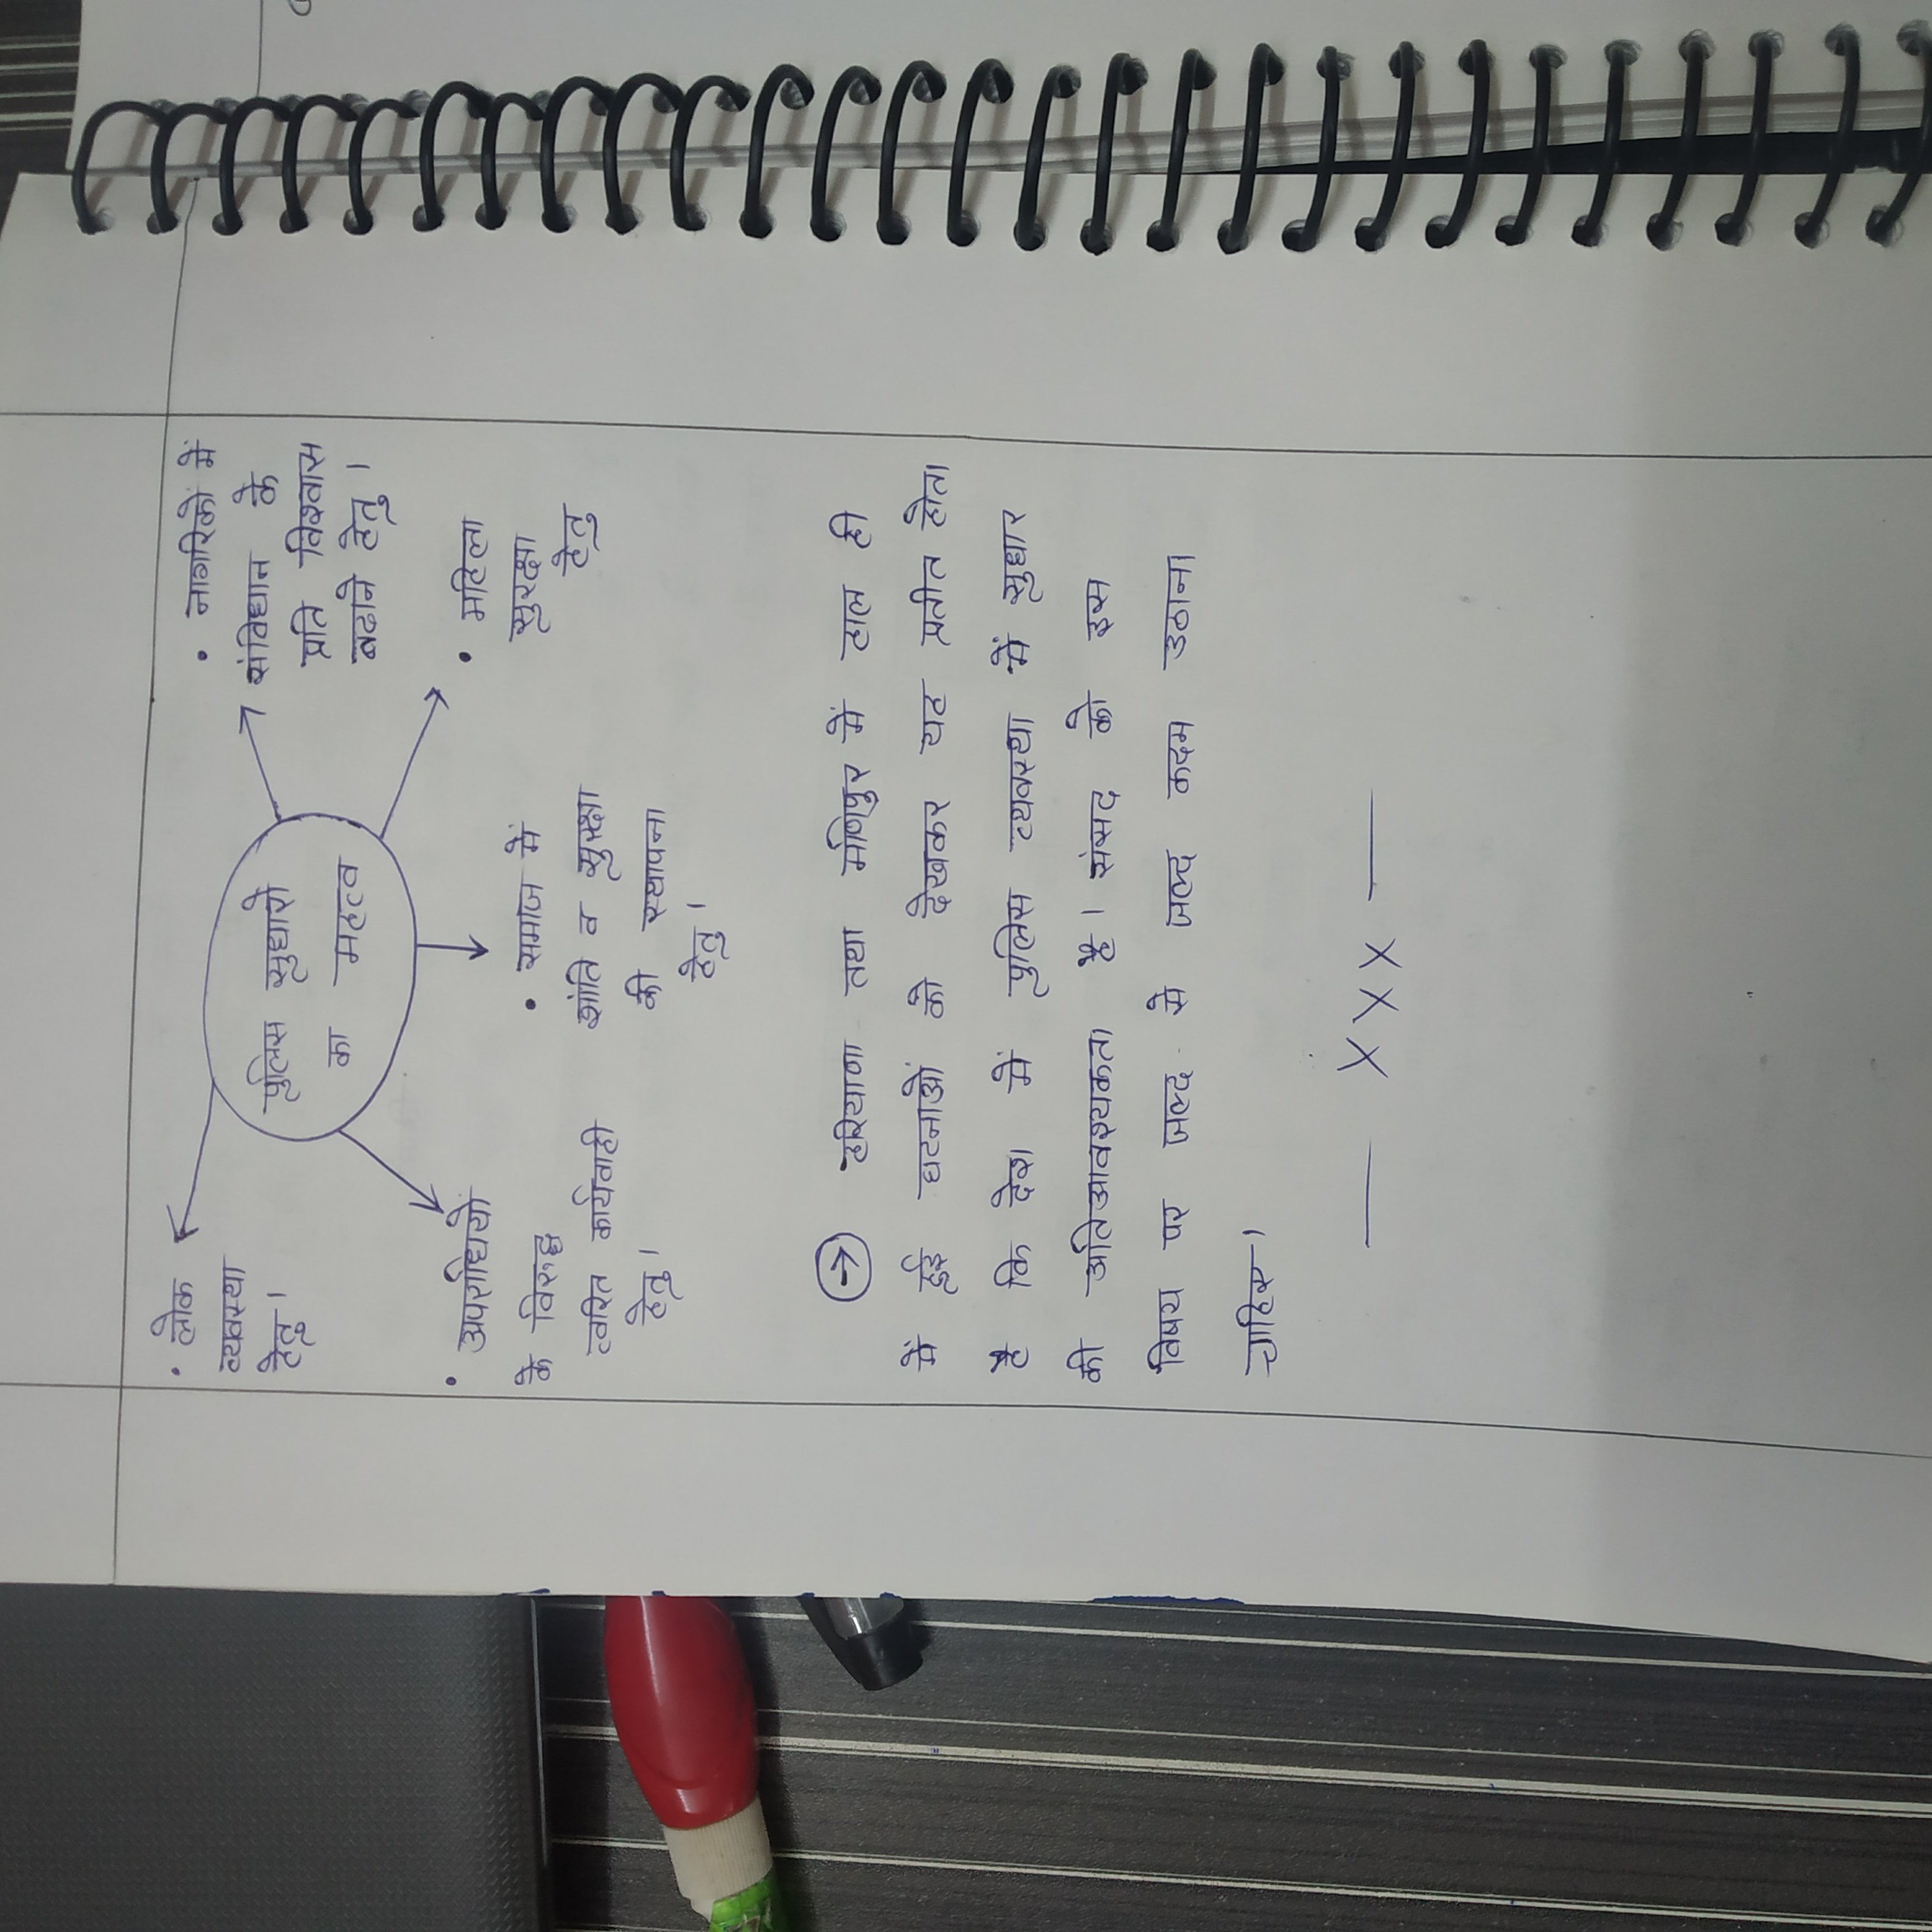 पुलिस सुधारो
का महत्व
• लोक
व्यवस्था
हेतु।
• नागरिकों में
संविधान के
प्रति विश्वास
बढाने हेतु।
• अपराधियों
के विरुद्ध
त्वरित कार्यवाही
हेतु।
• समाज में
शांति व सुरक्षा
की स्थापना
हेतु।
• महिला
सुरक्षा
हेतु
→ हरियाणा तथा मणिपुर में हाल ही
में हुई घटनाओं को देखकर यह प्रतीत होता
है कि देश में पुलिस व्यवस्था में सुधार
की अतिआवश्यकता है। संसद को इस
विषय पर जल्द से जल्द कदम उठाना
चाहिए।
— X X X —